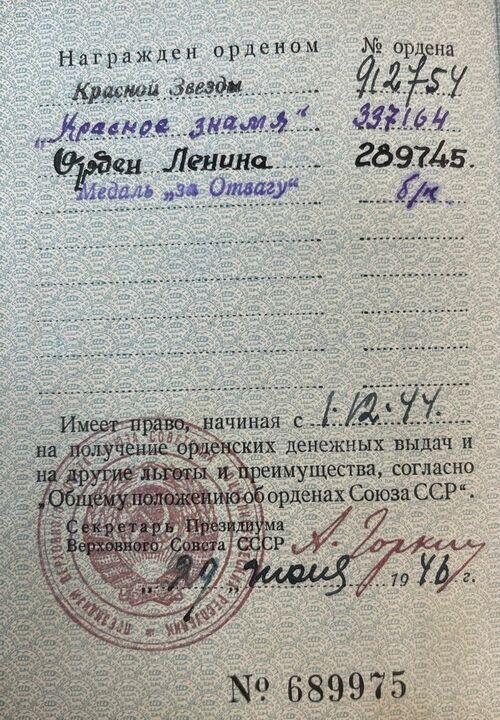 Награжден орденом № ордена
Красной Звезды 912754
„Красное знамя“ 337164
Орден Ленина 289745.
Медаль „за Отвагу“ б/н
Имеет право, начиная с 1.12.44.
на получение орденских денежных выдач и
на другие льготы и преимущества, согласно
„Общему положению об орденах Союза ССР“.
Секретарь Президиума
Верховного Совета СССР А. Горкин
„29“ июня 1946 г.
№ 689975